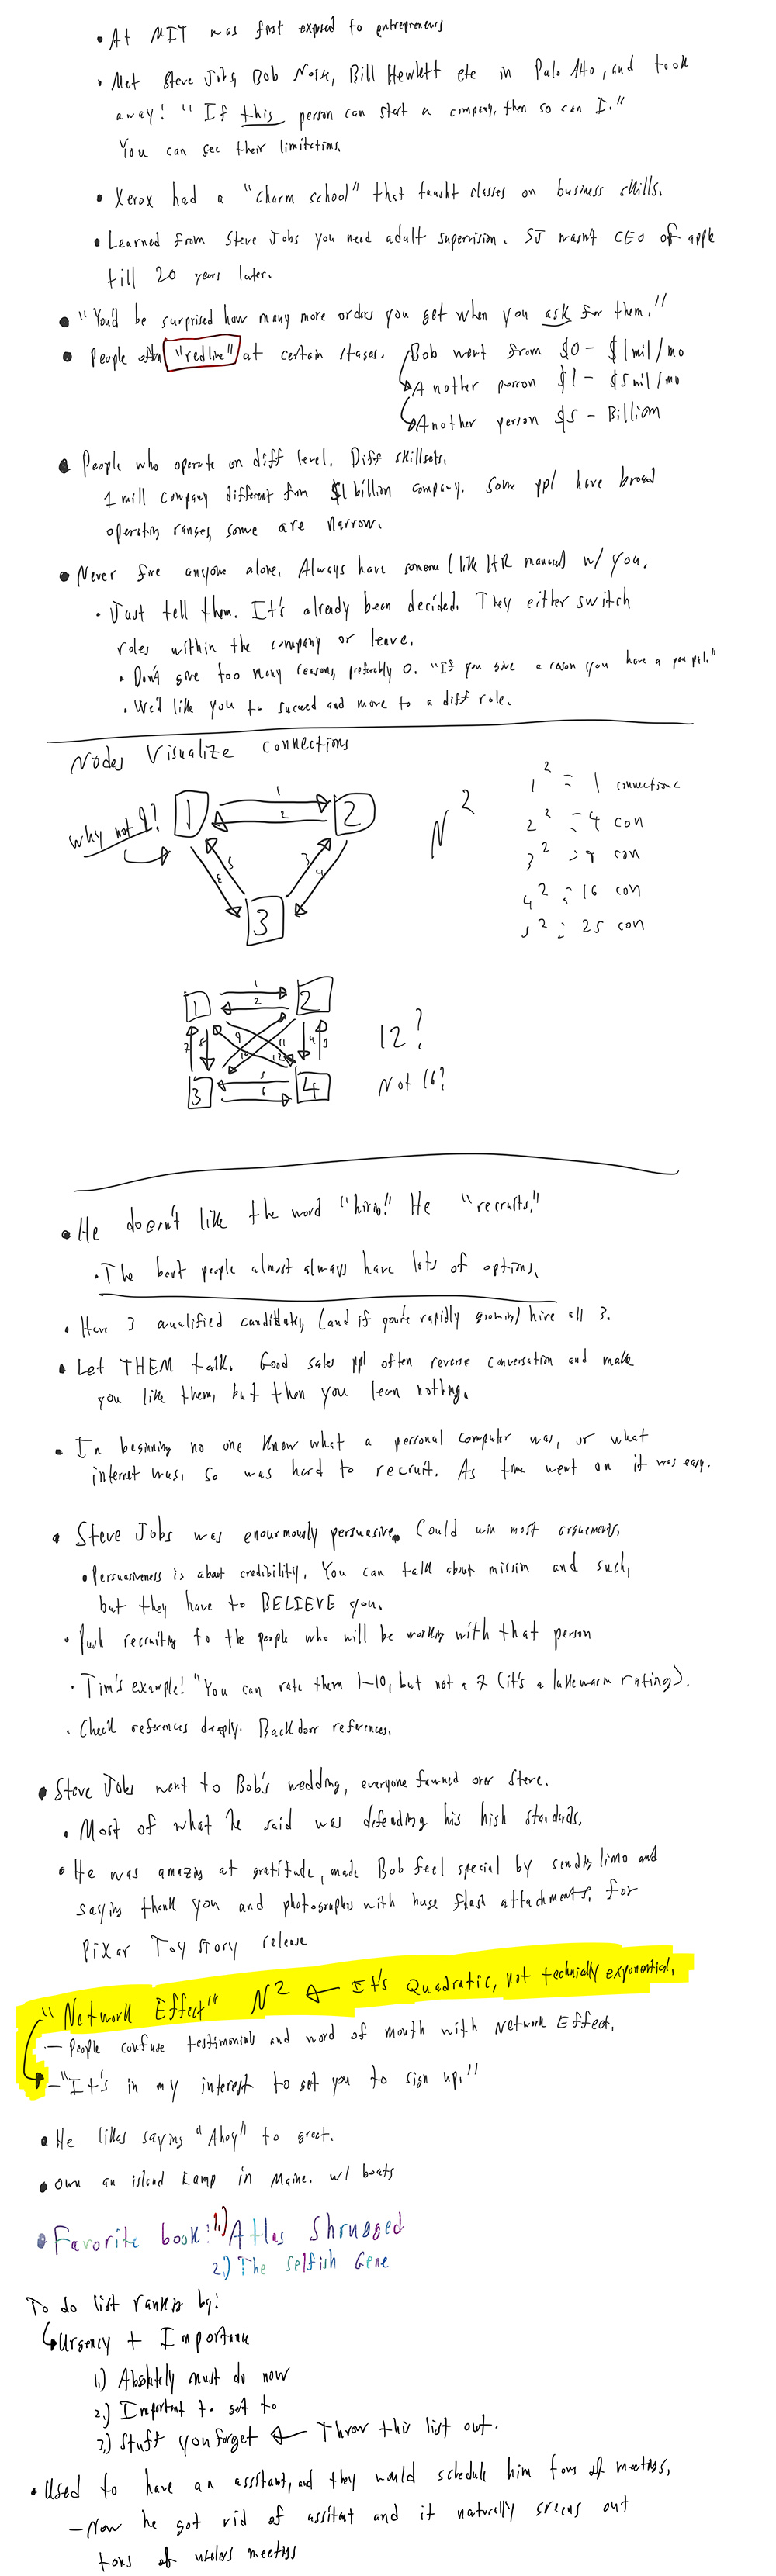 • At MIT was first exposed to entrepreneurs
• Met Steve Jobs, Bob Noyce, Bill Hewlett etc in Palo Alto, and took
away: "If this person can start a company, then so can I."
You can see their limitations.
• Xerox had a "charm school" that taught classes on business skills.
• Learned from Steve Jobs you need adult supervision. SJ wasn't CEO of apple
till 20 years later.
• "You'd be surprised how many more orders you get when you ask for them."
• People often "redline" at certain stages. Bob went from $0 - $1mil/mo
Another person $1 - $5mil/mo
Another person $5 - Billion
• People who operate on diff level. Diff skillsets.
1 mill company different from $1 billion company. Some ppl have broad
operating ranges, some are narrow.
• Never fire anyone alone. Always have someone (like HR manager) w/ you.
• Just tell them. It's already been decided. They either switch
roles within the company or leave.
• Don't give too many reasons, preferably 0. "If you give a reason you have a"
• We'd like you to succeed and move to a diff role.
Nodes Visualize Connections
why not 9?
1 2 3
1 2 3 4 5 6
N²
1² = 1 connections
2² = 4 con
3² = 9 con
4² = 16 con
5² = 25 con
1 2 3 4
1 2 3 4 5 6 7 8 9 10 11 12
12?
Not 16?
• He doesn't like the word "hiring" He "recruits."
• The best people almost always have lots of options.
• Have 3 qualified candidates, (and if you're rapidly growing) hire all 3.
• Let THEM talk. Good sales ppl often reverse conversation and make
you like them, but then you learn nothing.
• In beginning no one knew what a personal computer was, or what
internet was, so was hard to recruit. As time went on it was easy.
• Steve Jobs was enourmously persuasive. Could win most arguements.
• Persuasiveness is about credibility. You can talk about mission and such,
but they have to BELIEVE you.
• Push recruiting to the people who will be working with that person
• Tim's example: "You can rate them 1-10, but not a 7 (it's a lukewarm rating).
• Check references deeply. Back door refrences.
• Steve Jobs went to Bob's wedding, everyone fawned over Steve.
• Most of what he said was defending his high standards.
• He was amazing at gratitude, made Bob feel special by sending limo and
saying thank you and photographers with huge flash attachments, for
Pixar Toy Story release
"Network Effect" N² ← It's Quadratic, not technically exponential.
- People confuse testimonials and word of mouth with Network Effect.
- "It's in my interest to get you to sign up."
• He likes saying "Ahoy" to greet.
• Own an island camp in Maine. w/ boats
• Favorite book: 1.) Atlas Shrugged
2.) The Selfish Gene
To do list ranked by:
Urgency + Importance
1.) Absolutely must do now
2.) Important to get to
3.) Stuff you forget ← Throw this list out.
• Used to have an assitant, and they would schedule him tons of meetings,
- Now he got rid of assitant and it naturally screens out
tons of useless meetings